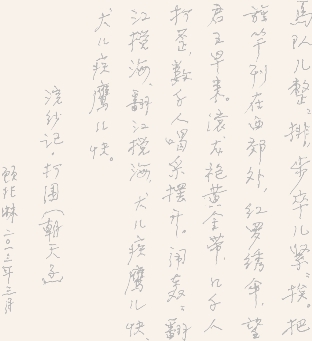 馬队儿整=排，步卒儿紧=挨。把
旌竿列在西郊外，红罗绣伞，望
君王早来。滚龙袍黄金带，几千人
打歪，数千人喝采摆开。闹垓=，翻
江搅海，翻江搅海 犬儿疾鹰儿快，
犬儿疾鹰儿快。
浣纱记·打围（朝天子）
顾 二〇一三年三月